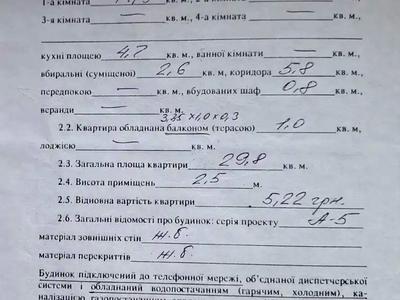 1-а кімната кв. м, 2-а кімната кв. м,
3-я кімната — кв. м, 4-а кімната — кв. м,
кухні площею 4,7 кв. м, ванної кімнати — кв. м,
вбиральні (суміщеної) 2,6 кв. м, коридора 5,8 кв. м,
передпокою — кв. м., вбудованих шаф 0,8 кв. м,
веранди — кв. м.
3,35 x 1,0 x 0,3
2.2. Квартира обладнана балконом (терасою) 1,0 кв. м,
лоджією — кв. м.
2.3. Загальна площа квартири 29,8 кв. м.
2.4. Висота приміщень 2,5 м.
2.5. Відновна вартість квартири 5,22 грн.
2.6. Загальні відомості про будинок: серія проекту А-5
матеріал зовнішніх стін ж.б.
матеріал перекриттів ж.б.
Будинок підключений до телефонної мережі, об'єднаної диспетчерської
системи і обладнаний водопостачанням (гарячим, холодним), ка-
налізацією газопостачанням